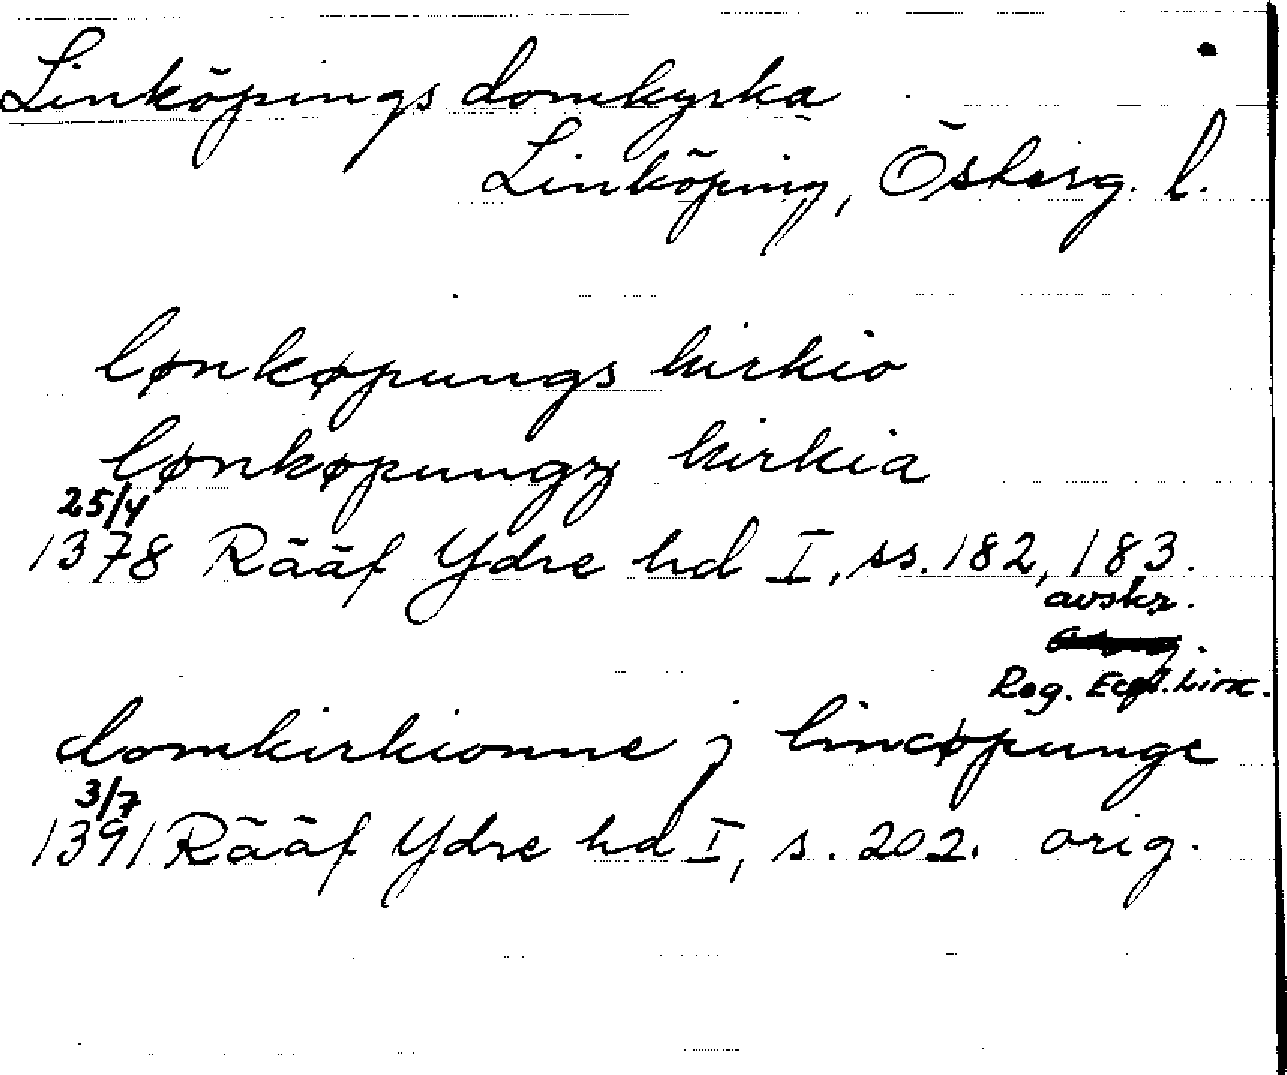 Linköpings domkyrka
Linköping, Österg. l.
lønkøpungs kirkio
lønkøpungz kirkia
25/4
1378 Rääf Ydre hd I, ss. 182, 183.
avskr.
Reg. Eccl. Linc.
domkirkionne j lincøpunge
3/7
1391 Rääf Ydre hd I, s. 202. orig.